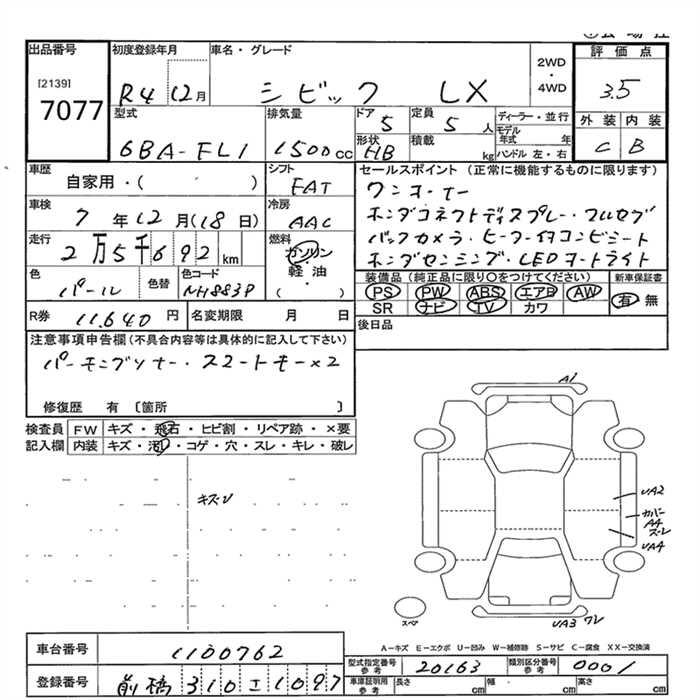 出品番号 初度登録年月 車名・グレード 2WD・4WD 評価点
[2139]
7077
R4 12月 シビック LX 3.5
型式 排気量 ドア 定員 ディーラー・並行 外装 内装
6BA-FL1 1500cc 5 5人 モデル年式 年 C B
形状 積載 ハンドル 左・右
HB kg
車歴 シフト セールスポイント (正常に機能するものに限ります)
自家用・( ) FAT ワンオーナー
車検 冷房 ホンダコネクトディスプレー・フルセグ
7年12月(18日) AAC バックカメラ・ヒーター付コンビシート
走行 燃料 ホンダセンシング・LEDヘッドライト
2万5千692km ガソリン・軽油( )
色 色替 色コード 装備品 (純正品に限り〇をつけてください) 新車保証書
パール NH883P PS PW ABS エアB AW 有 無
SR ナビ TV カワ
R券 11,640円 名変期限 月 日 後日品
注意事項申告欄 (不具合内容等は具体的に記入して下さい)
スマートキー×2
修復歴 有 〔箇所 〕
検査員 FW キズ・飛石・ヒビ割・リペア跡・×要
記入欄 内装 キズ・汚れ・コゲ・穴・スレ・キレ・破レ
A1
キズレ
UA2
カバー
A4
スレ
UA4
スペア
UA3 ワレ
A-キズ E-エクボ U-凹み W-補修跡 S-サビ C-腐食 XX-交換済
車台番号 1100762
型式指定番号 参考 20163 類別区分番号 参考 0001
登録番号 前橋 310 エ 1097
車庫証明用 参考 長さ cm 幅 cm 高さ cm